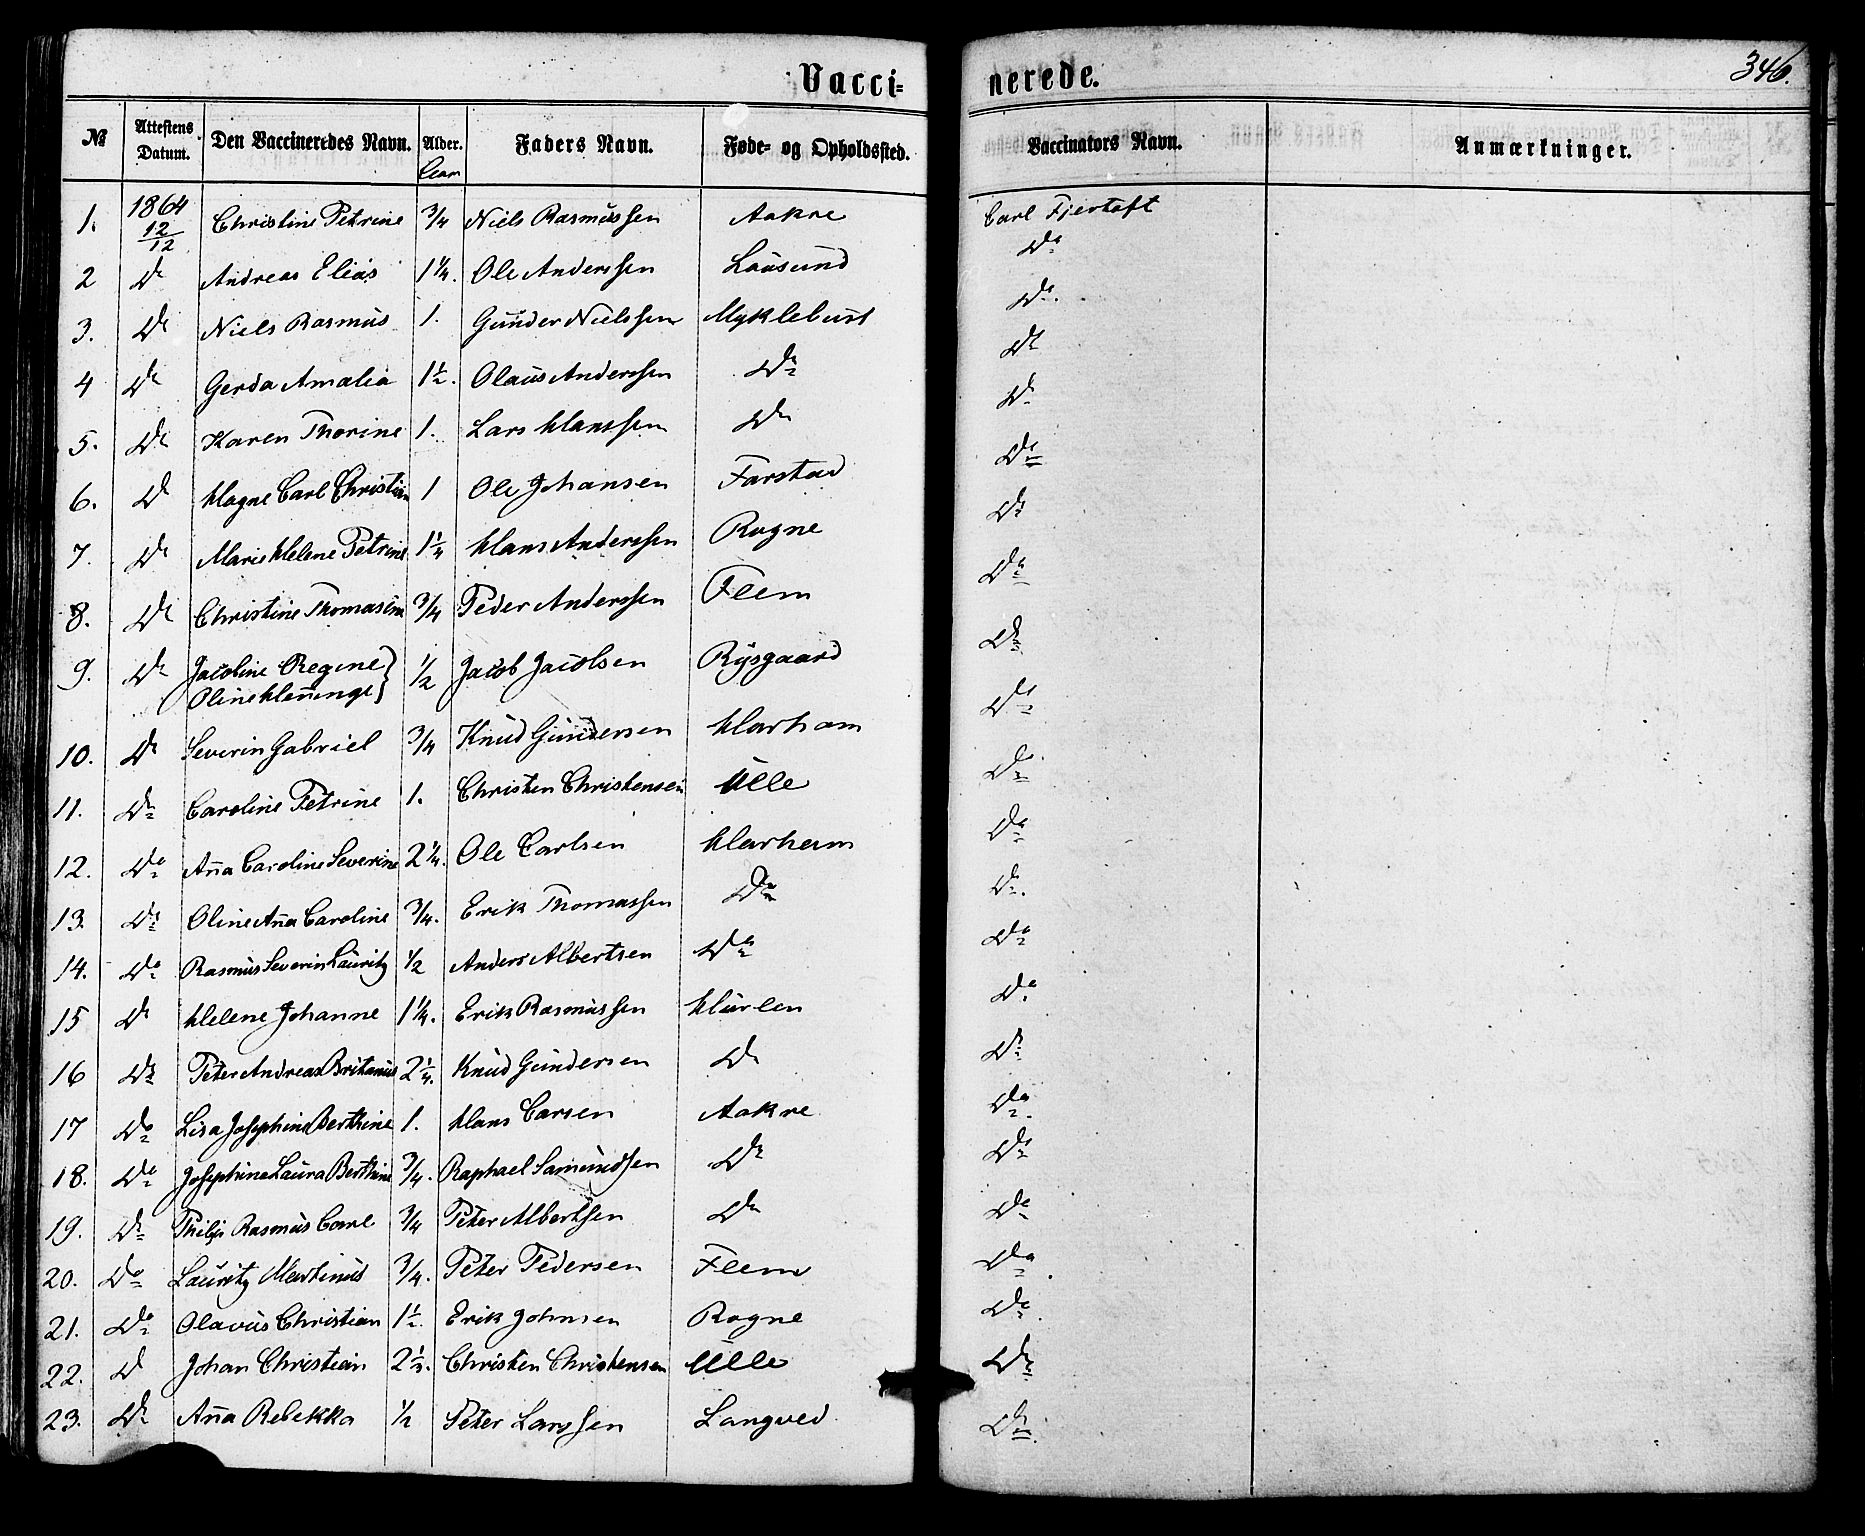 Vacci- nerede. 346.
№ Attestens Datum. Den Vaccineredes Navn. Alder. Faders Navn. Føde- og Opholdssted. Vaccinators Navn. Anmærkninger.
1. 1864 12/12 Christine Petrine 3/4 Niels Rasmussen Aakre Carl Fjertoft
2 Do Andreas Elias 1 1/4. Ole Anderssen Lausund Do
3. Do Niels Rasmus 1. Gunder Nielssen Myklebust Do
4 Do Gerda Amalia 1 1/2. Olaus Anderssen Do Do
5. Do Karen Thorine 1. Lars Hanssen Do Do
6. Do Hagne Carl Christian 1 Ole Johansen Farstad Do
7. Do Marie Helene Petrine 1 1/4 Hans Anderssen Rogne Do
8. Do Christine Thomasine 3/4 Peder Anderssen Fleem Do
9. Do Jacoline Regine } 1/2 Jacob Jacobsen Rysgaard Do
Oline Henninge }
10. Do Severin Gabriel 3/4 Knud Gundersen Harham Do
11. Do Caroline Petrine 1. Christen Christensen Ulle Do
12. Do Aña Caroline Severine 2 1/4. Ole Carlsen Harham Do
13. Do Oline Aña Caroline 3/4. Erik Thomassen Do Do
14. Do Rasmus Severin Lauritz 1/2 Anders Albertsen Do Do
15 Do Helene Johanne 1 1/4. Erik Rasmussen Hurlen Do
16 Do Peter Andreas Britanus 2 1/4. Knud Gundersen Do Do
17 Do Lisa Josephine Berthine 1. Hans Carsen Aakre Do
18. Do Josephine Laura Berthine 3/4. Raphael Samundsen Do Do
19. Do Philip Rasmus Carl 3/4 Peter Albertsen Do Do
20. Do Lauritz Martinus 3/4. Peter Pedersen Fleem Do
21. Do Olavus Christian 1 1/2. Erik Johnsen Rogne Do
22. Do Johan Christian 2 1/2. Christen Christensen Ulle Do
23. Do Aña Rebekka 1/2 Peter Larssen Langved Do